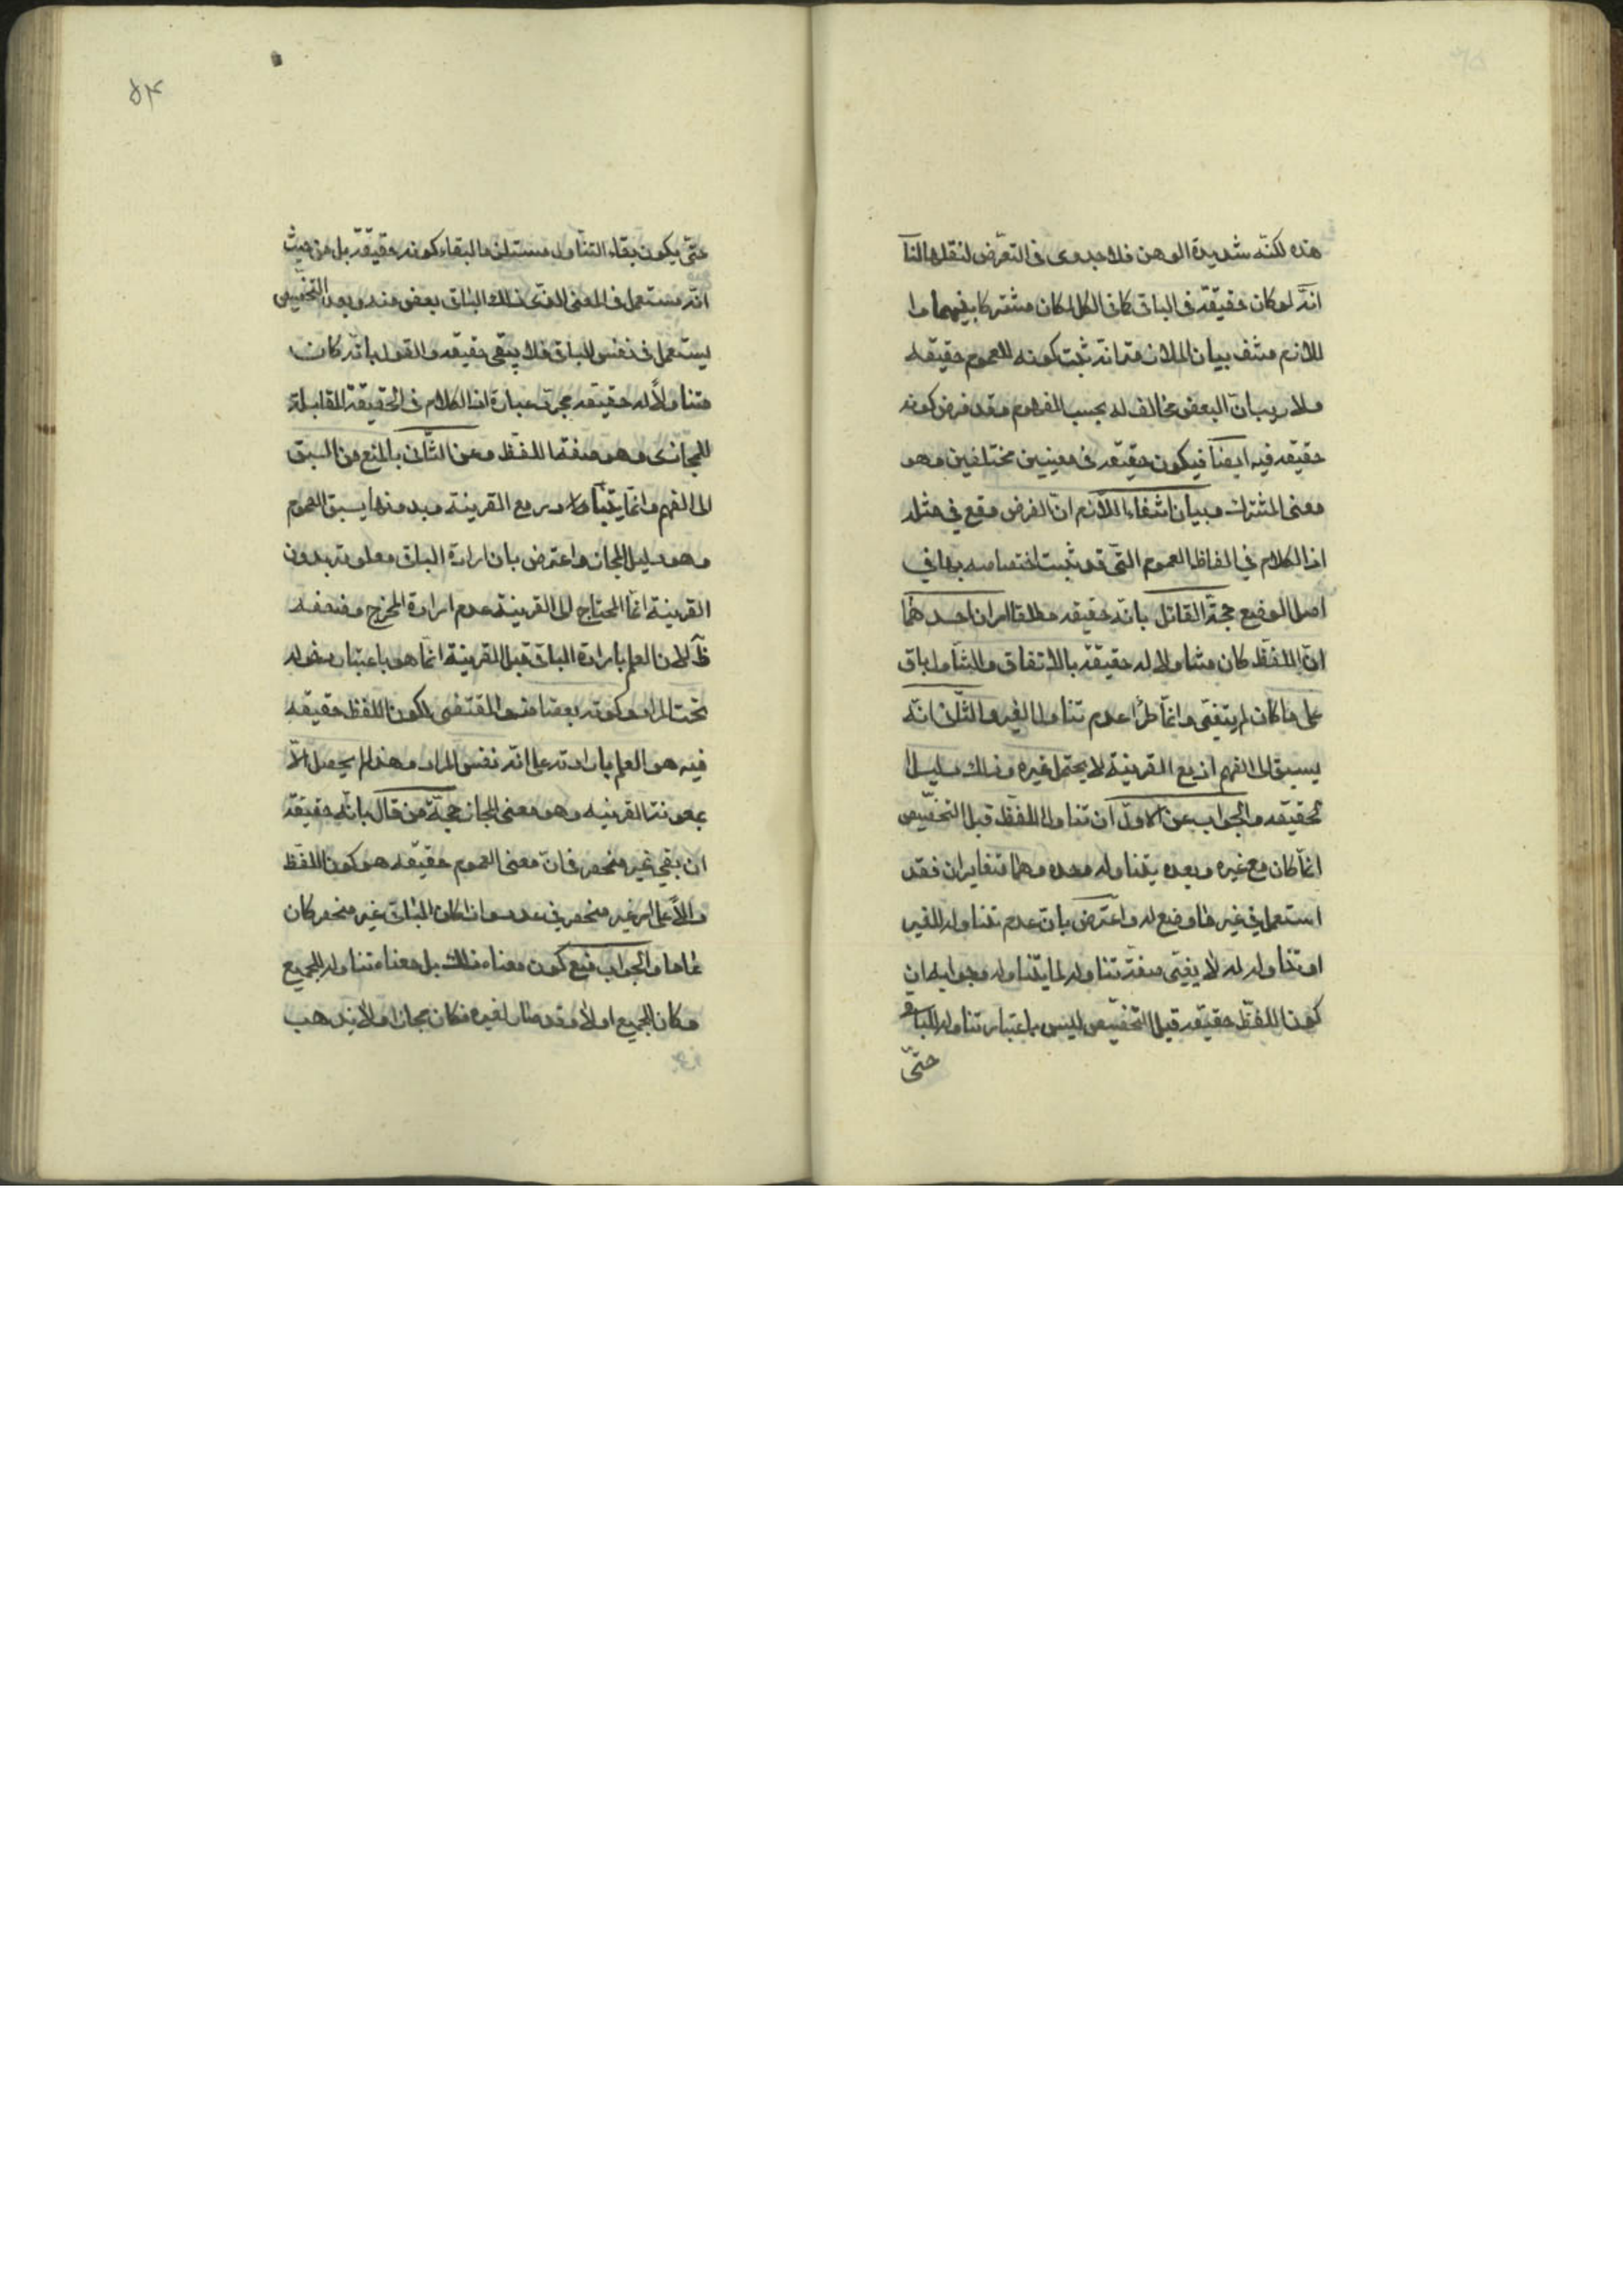 هذه لكنّه شديدة الوهن فلا جدوى فى التعرّض لنقلها لنا
انّه لو كان حقيقة فى الباقى كما فى الكل لكان مشتركا بينهما وا
للازم منتف بيان الملازمة انّه ثبت كونه للعموم حقيقه
ولا ريب انّ البعض مخالف له بحسب المفهوم وقد فرض كونه
حقيقه فيه ايضا فيكون حقيقه فى معنيين مختلفين وهو
معنى المشترك وبيان انتفاء اللّازم انّ الفرض وقع في مثله
اذ الكلام في الفاظ العموم التّى قد ثبت اختصاصه بها في
اصل الوضع حجّة القائل بانّه حقيقه مطلقا امران احدهما
انّ اللفظ كان متناولا له حقيقة بالاتفاق والتناول باق
على ما كان لم يتغيّر وانّما طرأ عدم تناول الغير والثّانى انّه
يسبق الى الفهم اذ مع القرينة لا يحتمل غيره وذلك دليل ا
لحقيقه والجواب عن الاوّل انّ تناول اللفظ قبل التخصيص
انّما كان مع غيره وبعده يتناوله وحده وهما متغايران فقد
استعمل في غير ما وضع له واعترض بانّ عدم تناوله للغير
او تناوله له لا يغيّر صفة تناوله لما يتناوله وجوابه ان
كون اللفظ حقيقه قبل التخصيص ليس باعتبار تناوله للباقى
حتّى
۵۴
حتّى يكون بقاء التناول مستلزما لبقاء كونه حقيقة بل من حيث
انّه مستعمل فى المعنى الذى ذلك الباقى بعض منه وبعد التخصيص
يستعمل فى نفس الباقى فلا يبقى حقيقه والقول بانّه كان
متناولاً له حقيقه مجرّد عبارة اذ الكلام فى الحقيقة المقابلة
للمجاز وهو صفة اللفظ وعن الثّانى بالمنع من السبق
الى الفهم وانّما يتبادر مع القرينة وبدونها يسبق العموم
وهو دليل المجاز واعترض بان ارادة الباقى معلومة بدون
القرينة انّما المحتاج الى القرينة عدم ارادة المخرج وضعفه
ظّ لان العلم بارادة الباقى قبل القرينة انّما هو باعتبار دخوله
تحت المراد وكونه بعضا منه والمقتضى لكون اللفظ حقيقه
فيه هو العلم بارادته على انّه نفس المراد وهذا لم يحصل الّا
بمعونة القرينه وهو معنى المجاز حجّة من قال بانّه حقيقه
ان بقي غير منحصر فانّ معنى العموم حقيقه هو كون اللفظ
دالاًّ على امر غير منحصر في عدد واذا كان الباقى غير منحصر كان
عاما والجواب منع كون معناه ذلك بل معناه تناوله للجميع
وكان للجميع اولا وقد صار لغيره فكان مجازا ولا يذهب